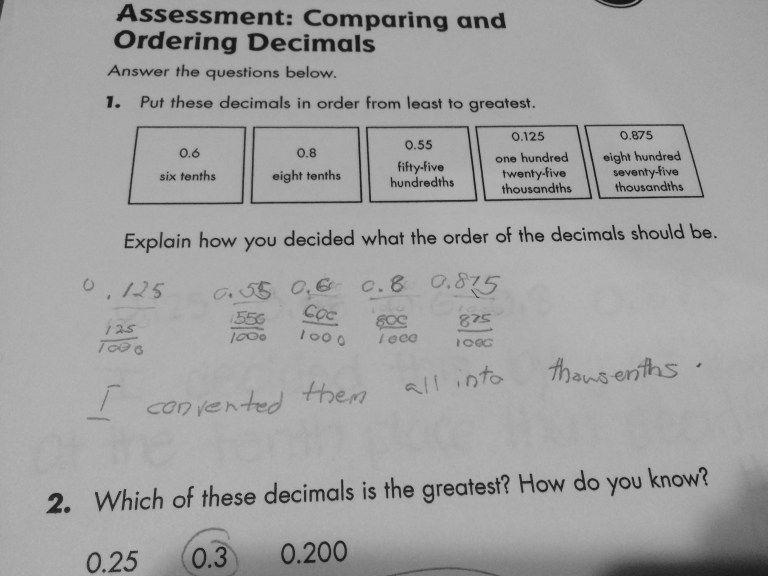 Assessment: Comparing and
Ordering Decimals
Answer the questions below.
1. Put these decimals in order from least to greatest.
0.6
six tenths
0.8
eight tenths
0.55
fifty-five
hundredths
0.125
one hundred
twenty-five
thousandths
0.875
eight hundred
seventy-five
thousandths
Explain how you decided what the order of the decimals should be.
0.125 0.55 0.6 0.8 0.875
125 550 600 800 875
1000 1000 1000 1000 1000
I convented them all into thousenths.
2. Which of these decimals is the greatest? How do you know?
0.25 0.3 0.200